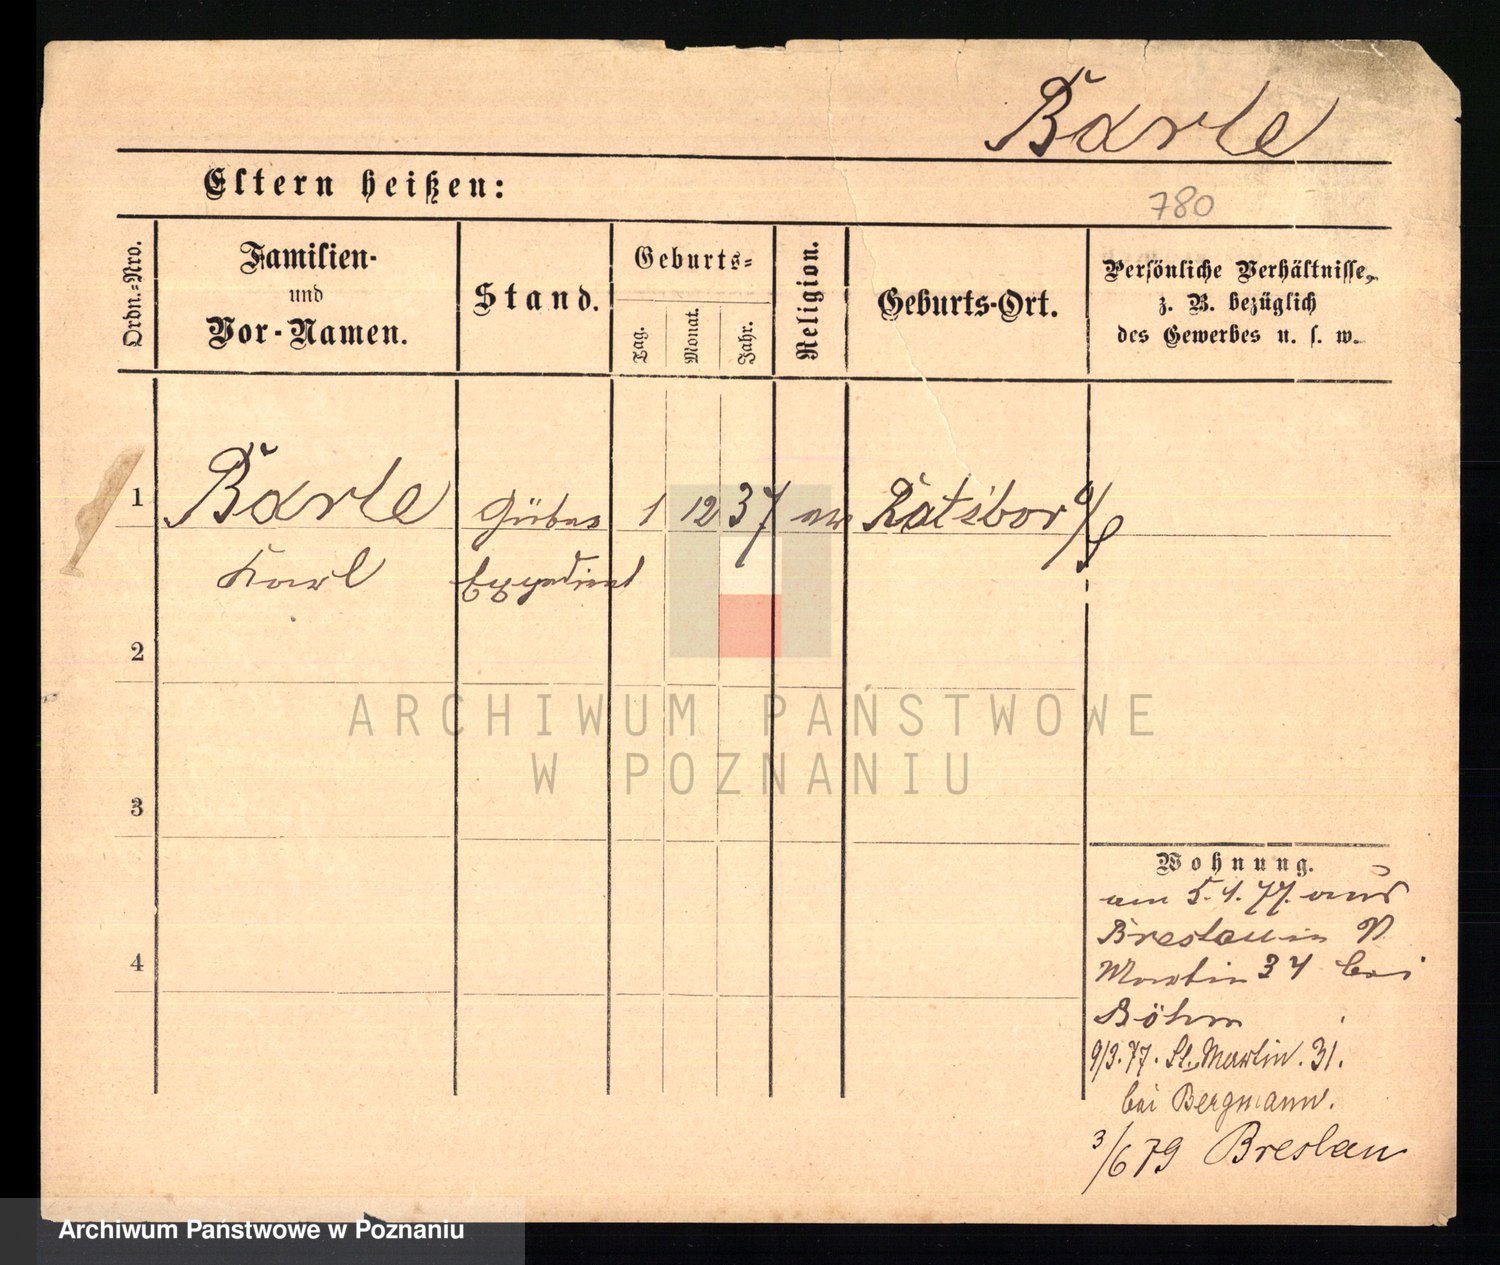 Barle
780
Eltern heißen:
Ordn.-Nro.
Familien-
und
Vor-Namen.
Stand.
Geburts-
Tag.
Monat.
Jahr.
Religion.
Geburts-Ort.
Persönliche Verhältnisse,
z. B. bezüglich
des Gewerbes u. s. w.
1
Barle
Karl
Güter
Expedient
1
12
37
Ratibor O/S
2
3
4
Wohnung.
am 5.1.77. aus
Breslau in
Martin 34 bei
Böhm
9/3.77. St. Martin. 31.
bei Bergmann.
3/6 79 Breslau
ARCHIWUM PAŃSTWOWE
W POZNANIU
Archiwum Państwowe w Poznaniu